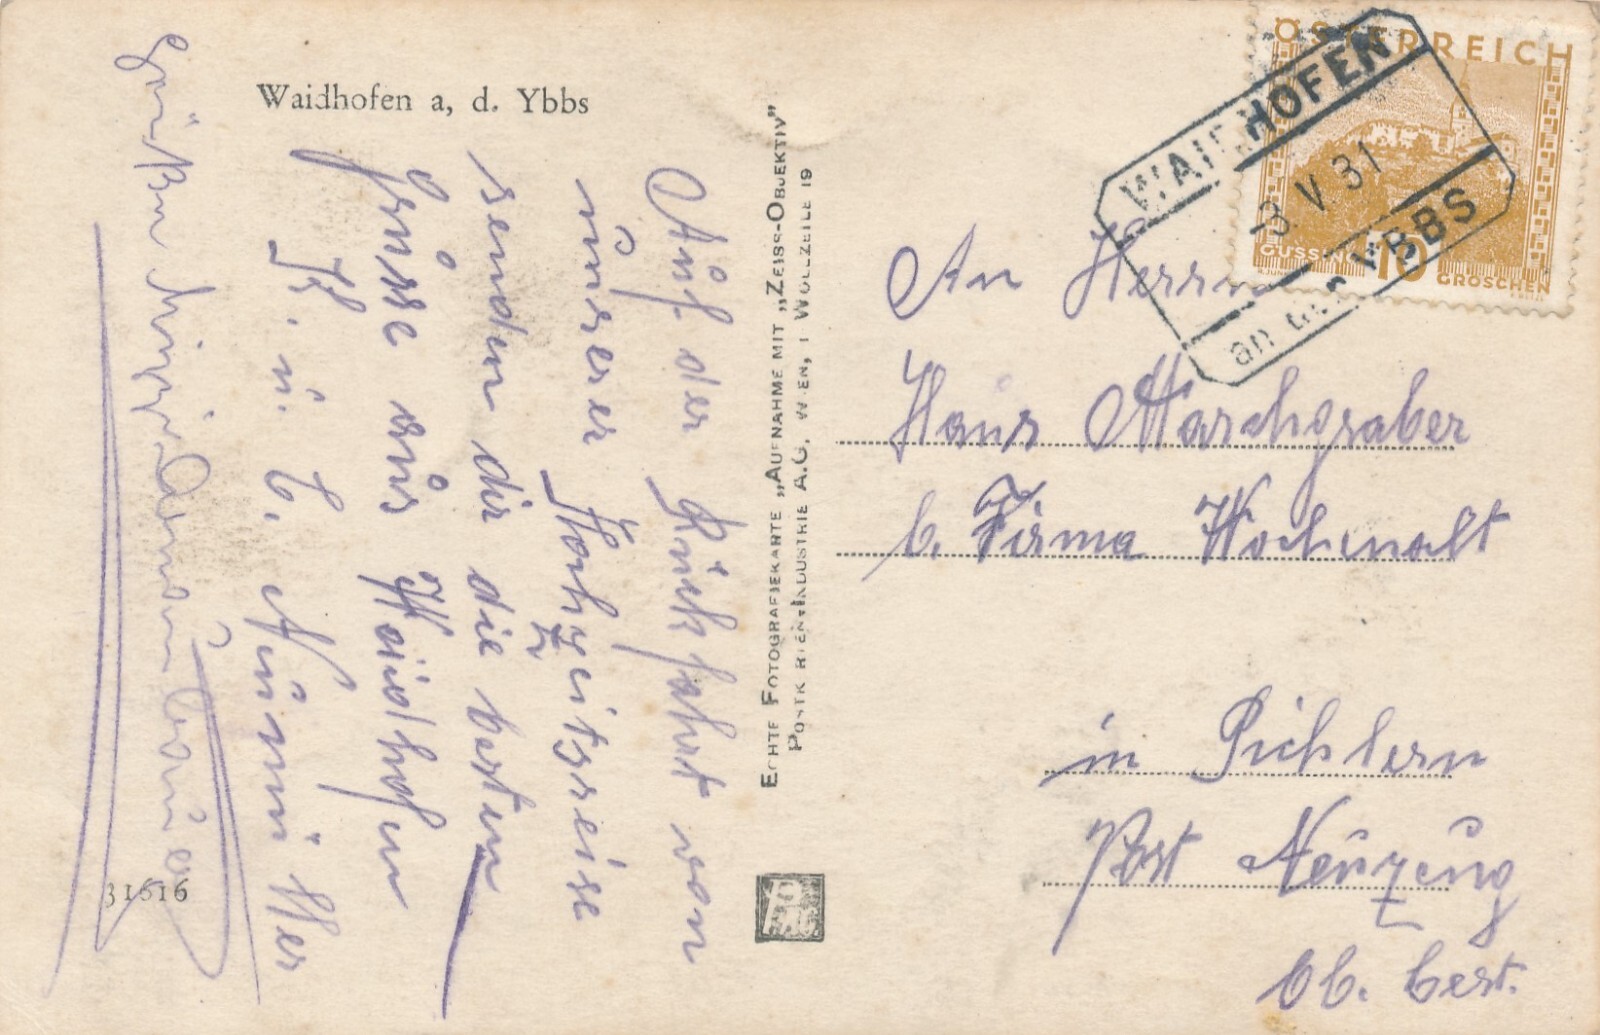 Waidhofen a, d. Ybbs
Auf der Rückfahrt von
unserer Hochzeitsreise
senden dir die besten
Grüsse aus Waidhofen
Grüßen
31616
ECHTE FOTOGRAFIEKARTE „AUFNAHME MIT „ZEISS-OBJEKTIV"
POSTKARTEN-INDUSTRIE A.G., WIEN, I WOLLZEILE 19
PIAG.
ÖSTERREICH
GÜSSING 10 GROSCHEN
WAIDHOFEN
-3 V. 31
an der YBBS
An Herrn
Hans Marchgraber
b. Firma
in Pichlern
Post Neuzeug
Ob. Öest.